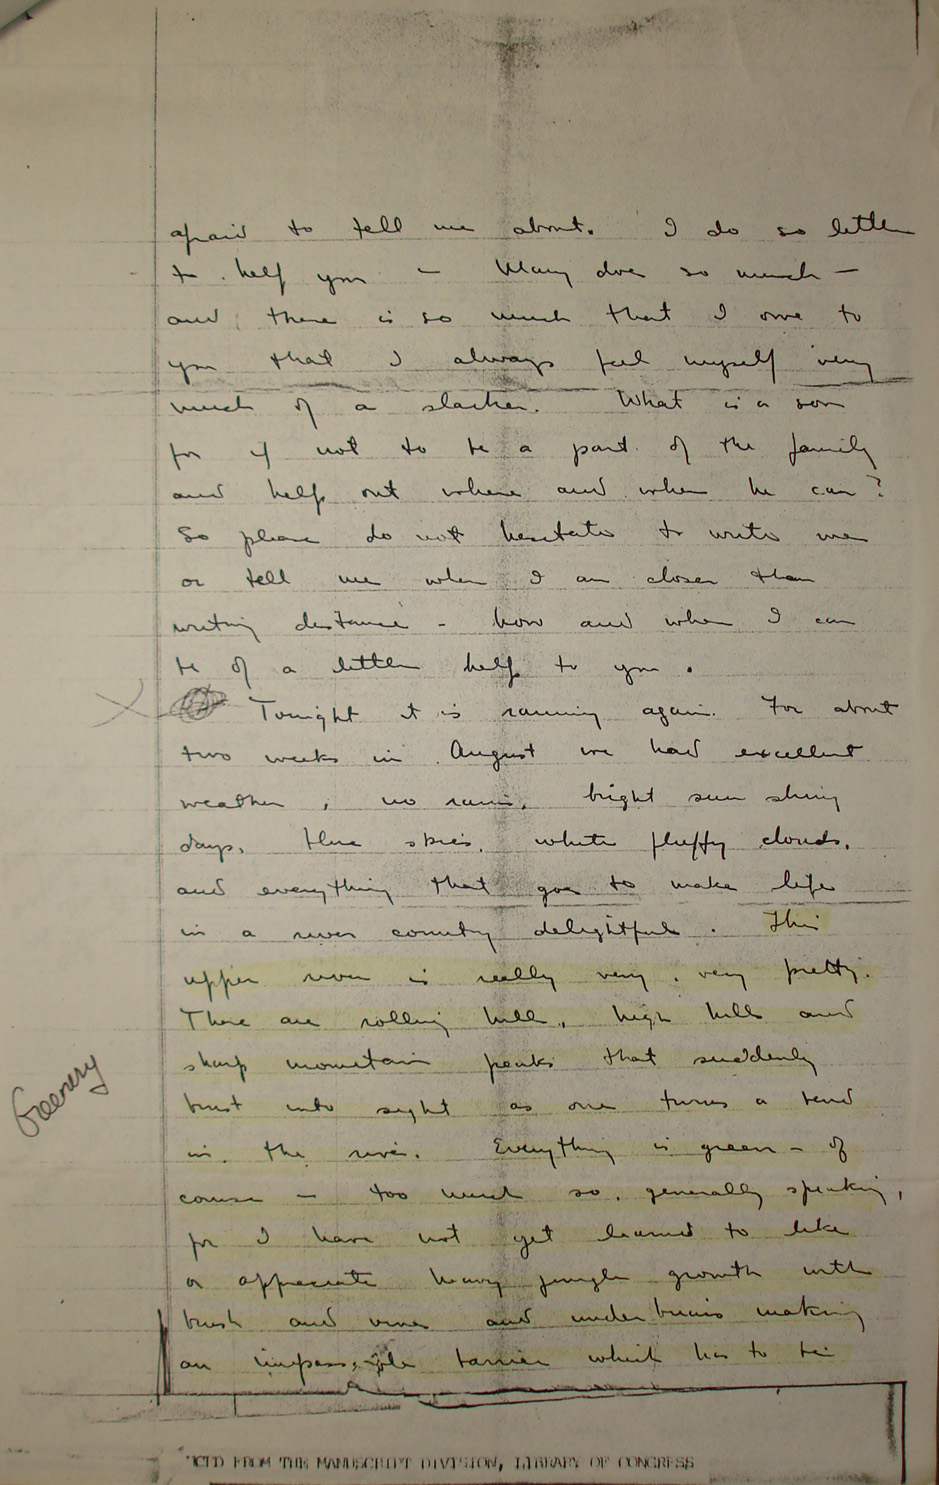 afraid to tell me about. I do so little
to help you – Mary does so much –
and there is so much that I owe to
you that I always feel myself very
much of a slacker. What is a son
for if not to be a part of the family
and help out where and when he can?
So please do not hesitate to write me
or tell me when I am closer than
writing distance – how and when I can
be of a little help to you.
Tonight it is raining again. For about
two weeks in August we had excellent
weather, no rain, bright sun shiny
days, blue skies, white fluffy clouds,
and everything that goes to make life
in a river country delightful. This
upper river is really very, very pretty.
There are rolling hills, high hills and
sharp mountain peaks that suddenly
burst into sight as one turns a bend
in the river. Everything is green – of
Greenery
course – too much so, generally speaking,
for I have not yet learned to like
or appreciate heavy jungle growth with
brush and vines and under making
an impassible barrier which has to be
UCED FROM THE MANUSCRIPT DIVISION, LIBRARY OF CONGRESS